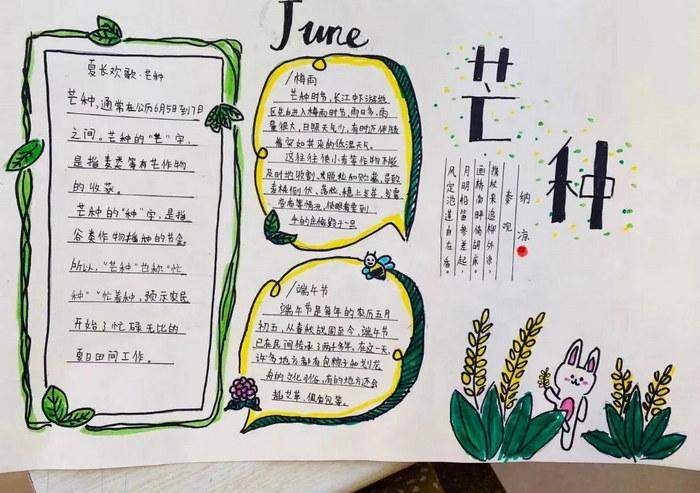 June
夏长欢歌·芒种
芒种,通常在公历6月5日到7日
之间,芒种的“芒”字,
是指麦类等有芒作物
的收获。
芒种的“种”字,是指
谷类作物播种的节令。
所以,“芒种”也称“忙
种”“忙着种,预示农民
开始了忙碌无比的
夏日田间工作。
梅雨
芒种时节,长江中下游地
区先后进入梅雨时节,雨日多,雨
量很大,日照天气少,有时还伴随
着突如其来的低温天气。
这往往使小麦等作物不能
及时地收割、脱粒和贮藏,导致
麦株倒伏、落粒、穗上发芽、
等情况,使眼看要到
手的庄稼毁于一旦
端午节
端午节是每年的农历五月
初五,从春秋战国至今,端午节
已在民间传承了两千多年,在这一天,
许多地方都有包粽子和划龙
舟的文化习俗,有的地方还会
插艾草、佩香包等。
芒
种
纳凉
秦观
携杖来追柳外凉,
画桥南畔倚胡床。
月明船笛参差起,
风定池莲自在香。